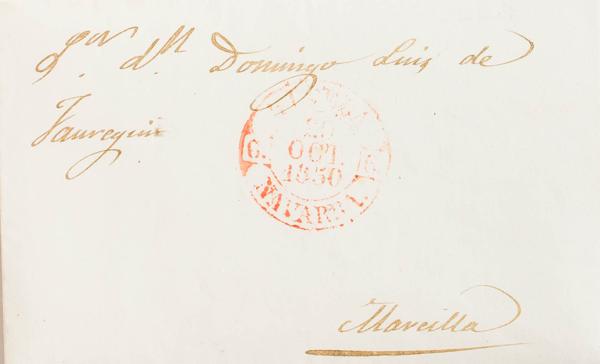 Sor. d.n Domingo Luis de
Jauregui
OCT.
1850
NAVARRA
6. 6.
Marcilla